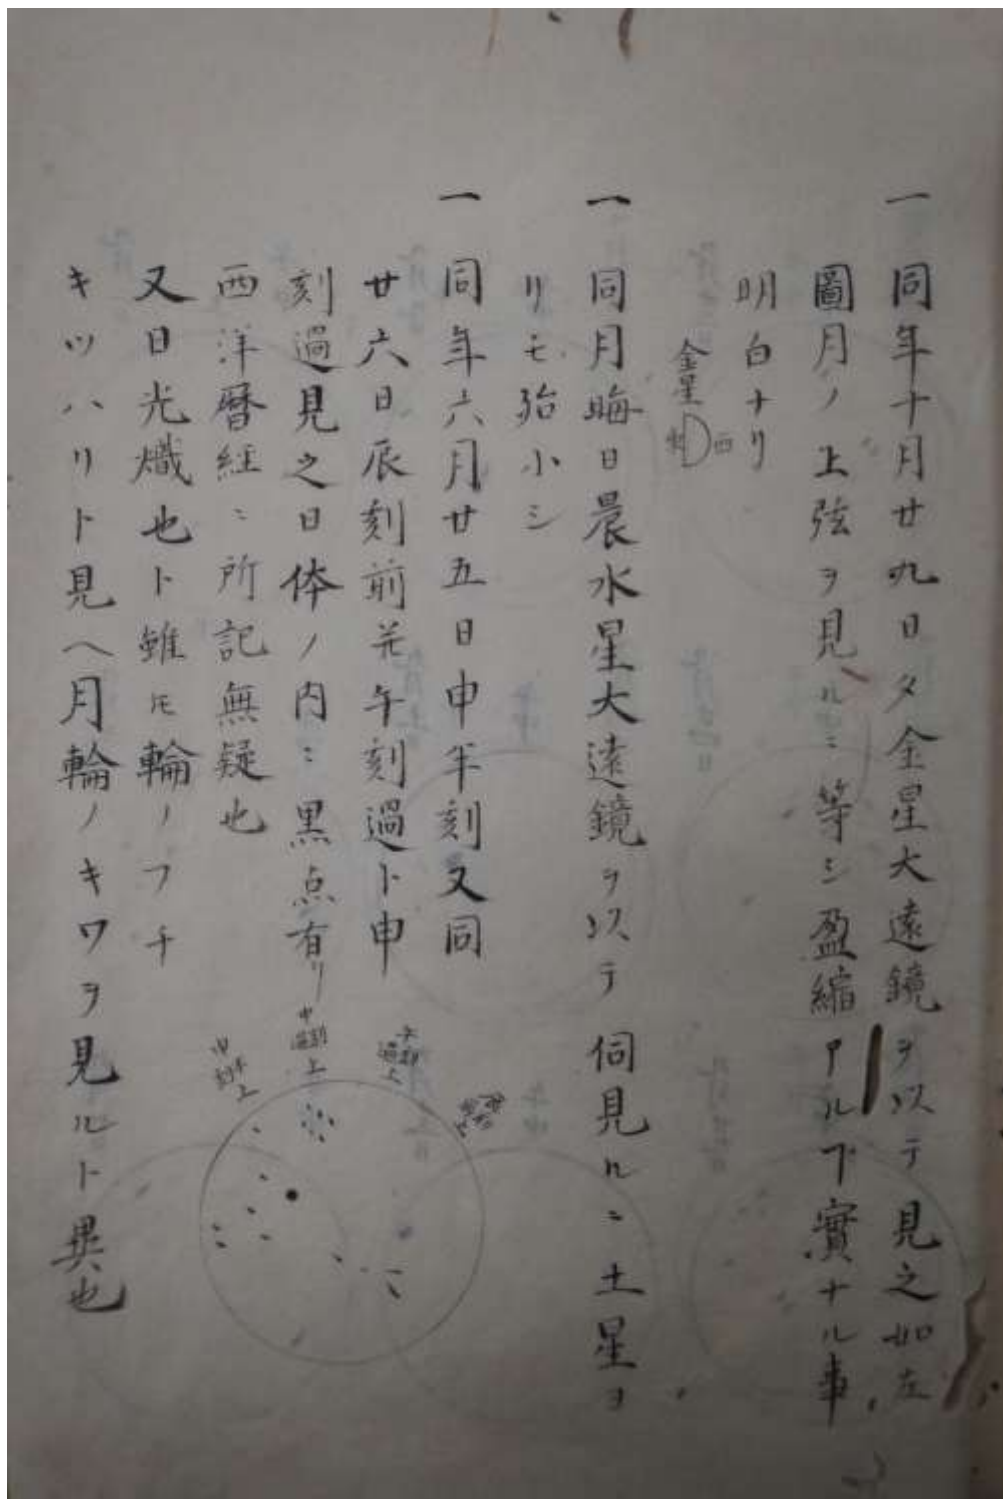 一 同年十月廿九日夕金星大遠鏡ヲ以テ見之如左
圖月ノ上弦ヲ見ルニ等シ盈縮アルヿ實ナル事
明白ナリ
金星
西
一 同月晦日晨水星大遠鏡ヲ以テ伺見ルニ土星ヨ
リモ殆小シ
一 同年六月廿五日申半刻又同
廿六日辰刻前并午刻過ト申
刻過見之日体ノ内ニ黒点有リ
西洋暦経ニ所記無疑也
又日光熾也ト雖𪜈輪ノフチ
キツハリト見ヘ月輪ノキワヲ見ルト異也
申刻過上
午刻過上
申半刻上